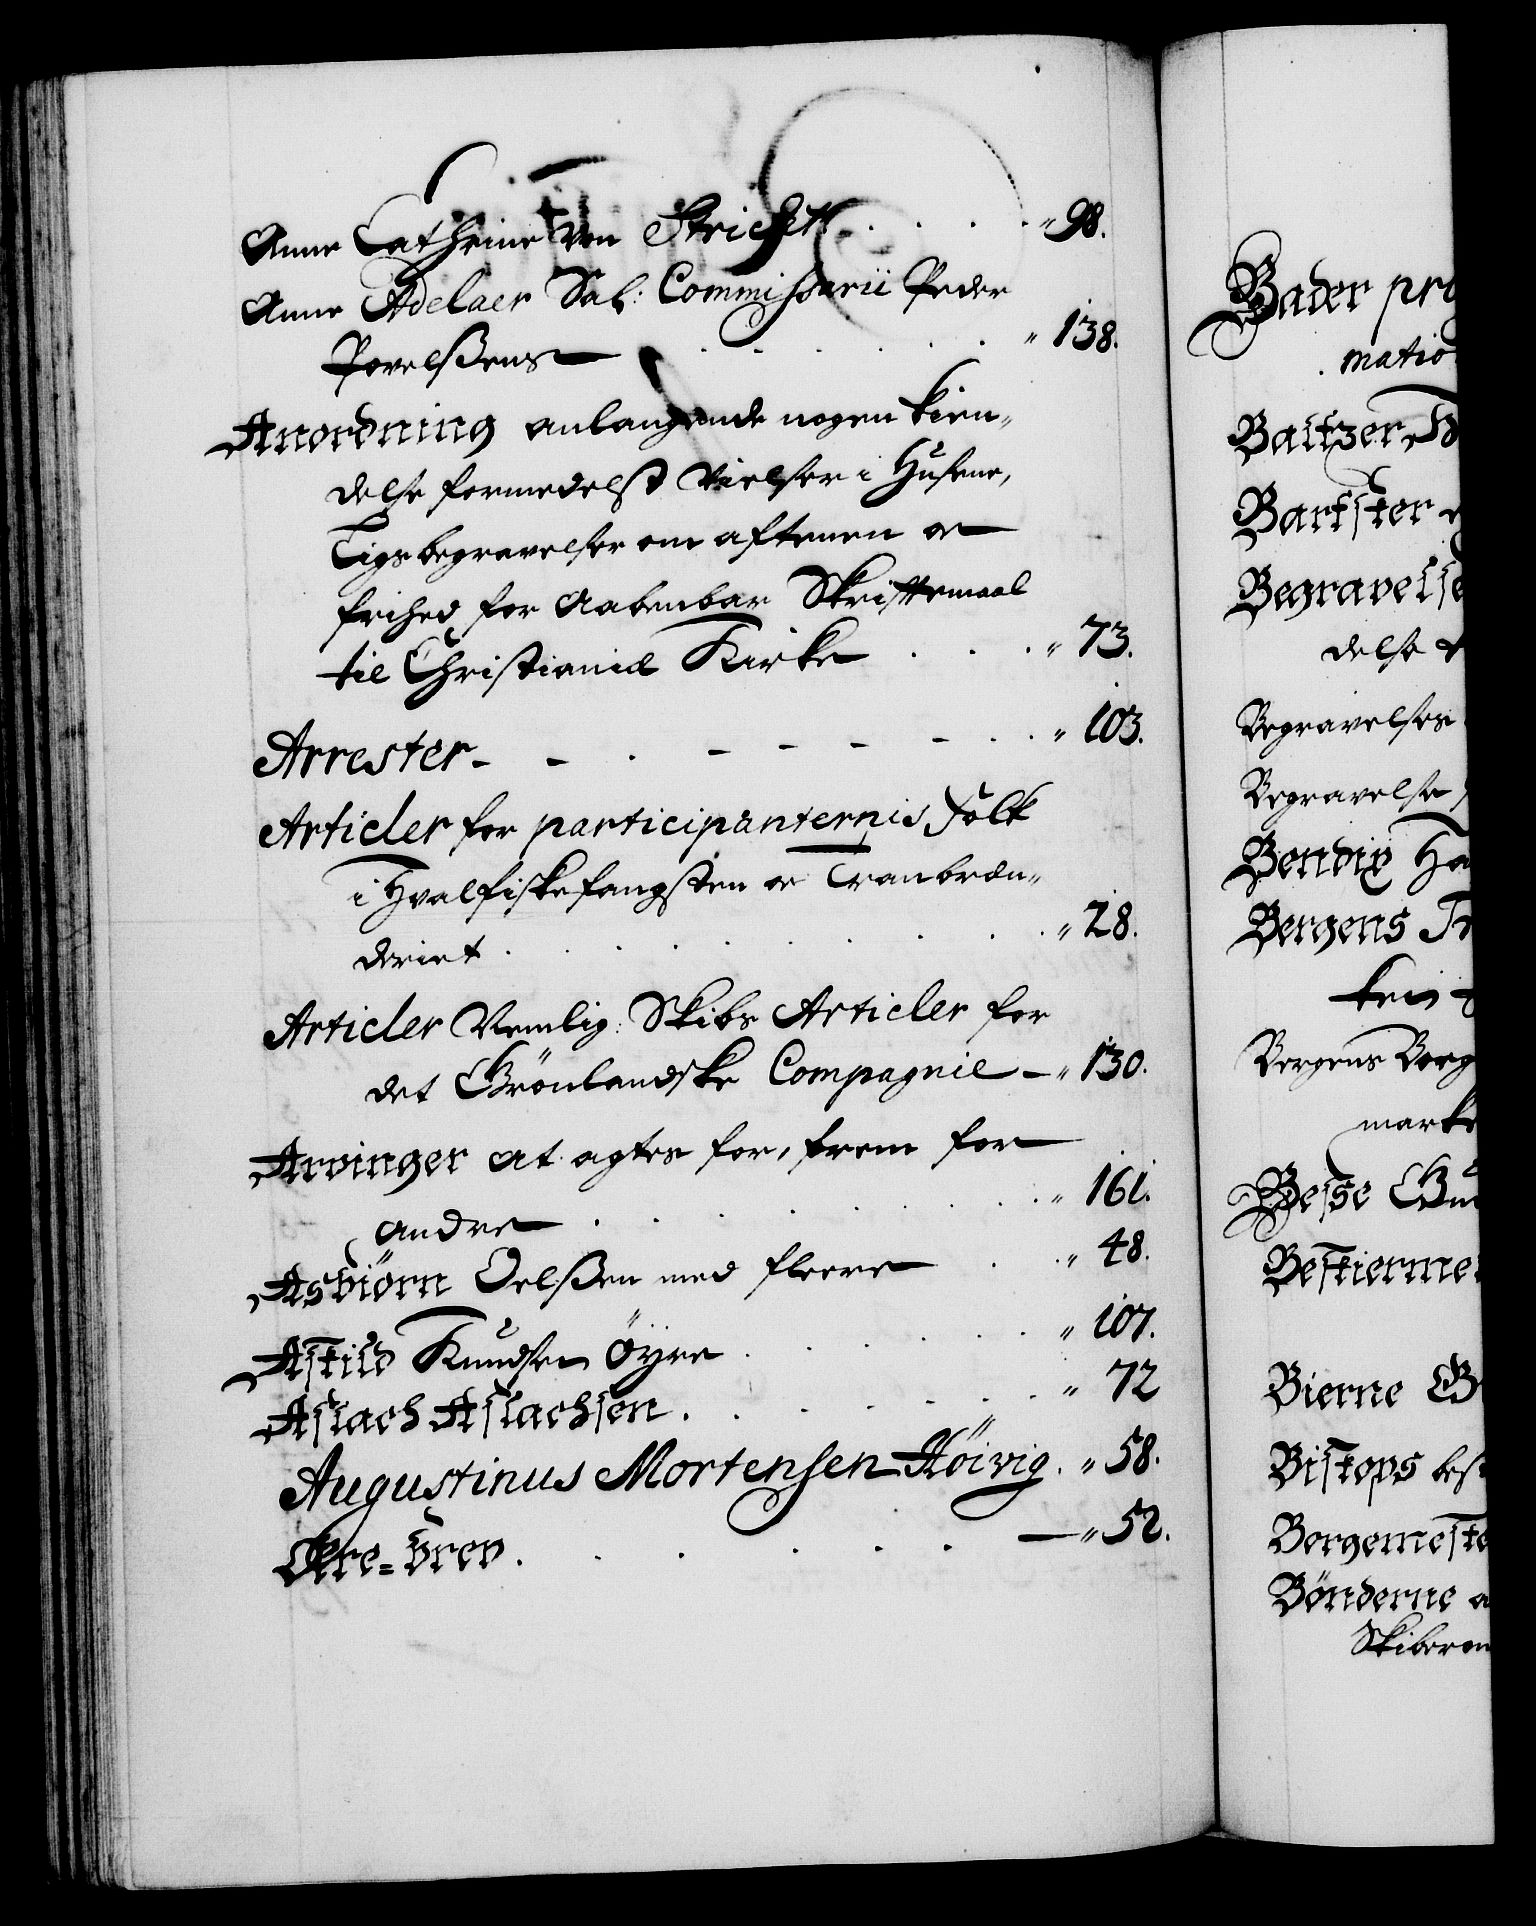 Anne Cathrine von Stricket . . . . " 98.
Anne Adelaer Sal: Commissarii Peder
Povelßens . . . . . " 138.
Anordning anlangende nogen kien„
delse formedelst Vielser i Husene,
Ligsbegravelser om aftenen oc
frihed for Aabenbar Skriftemaal
til Christianiæ Kirke . . . " 73.
Arrester - - . - - - - . . " 103.
Articler for participanternis folk
i Hvalfiskefangsten oc Tranbræn„
deriet . . . . . . . . " 28.
Articler Nemlig: Skibs Articler for
det Grönlandske Compagnie — " 130.
Arvinger at agtes for, frem for
andre . . . . . . . " 161.
Asbiørn Oelßen med fleere . . " 48.
Askild Knudsen Øyre . . . . . " 107.
Aslach Aslachsen . . . . . . . " 72
Augustinus Mortensen Höivig . " 58.
Ære=brev . . . . . . — " 52.
Bader pro
matio
Baltzer
Bartsker
Begravelse
delse
Begravelses
Begravelse
Bendix Ha
Bergens
Bergens Borg
marke
Besse Gu
Beskierme
Bierne G
Biskops
Borgemeste
Bönderne a